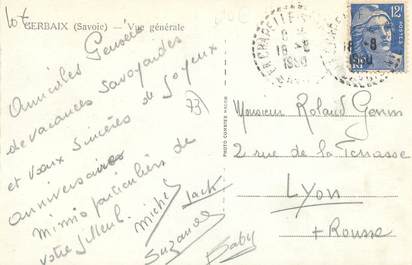 lot
GERBAIX (Savoie) — Vue générale
Amicales Pensées
de vacances Savoyardes
et vœux sincères de Joyeux
anniversaires
Mimis particuliers de
votre filleul. Michel Jack
Suzanne Baby
73
PHOTO COMBIER MACON
LA CHAPELLE-S
18-8
1950
12F
POSTES
Monsieur Roland Genin
2 rue de la Terrasse
Lyon
+ Rousse